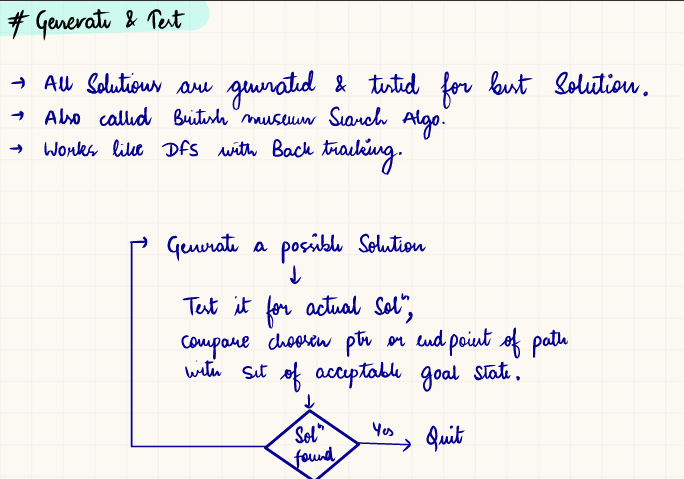 # Generate & Test
→ All Solutions are generated & tested for best Solution.
→ Also called British museum Search Algo.
→ Works like DFS with Back tracking.
Generate a possible Solution
Test it for actual Solⁿ,
compare choosen ptr or endpoint of path
with set of acceptable goal state.
Solⁿ found
Yes
Quit